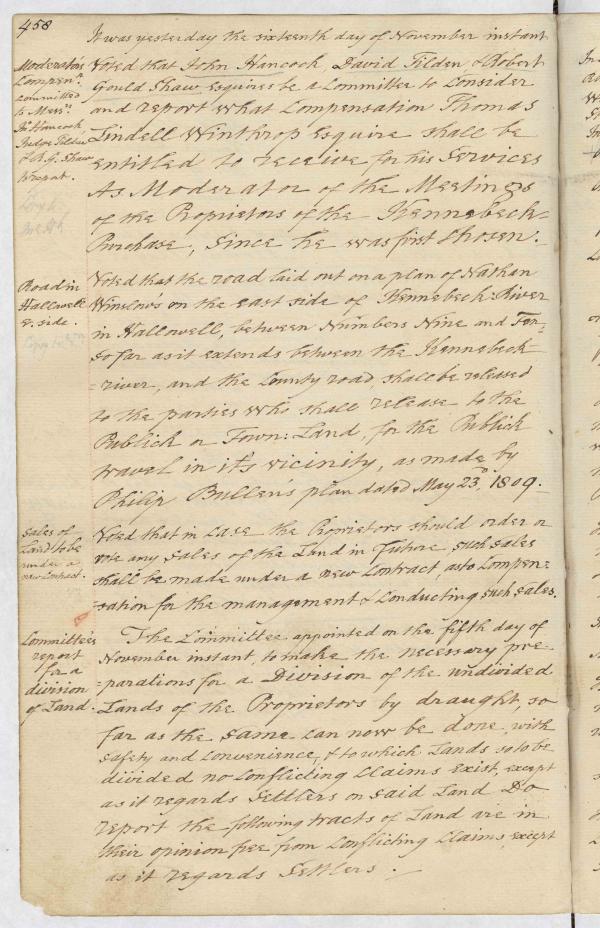 458
It was yesterday the sixteenth day of November instant
Moderator's
Compenn.
committed
to Messrs.
Jn. Hancock
Tilden
& R. G. Shaw
Voted that John Hancock, David Tilden & Robert
Gould Shaw Esquires be a Committee to Consider
and report what Compensation Thomas
Lindell Winthrop Esquire shall be
entitled to receive for his Services
As Moderator of the Meetings
of the Proprietors of the Kennebeck
Purchase, Since he was first Chosen.
Road in
Hallowell
E. side.
Voted that the road laid out on a plan of Nathan
Winslow's on the east side of Kennebeck River
in Hallowell, between Numbers Nine and Ten,
so far as it extends between the Kennebeck
=river, and the County road, shall be released
to the parties who shall release to the
Publick or Town: Land, for the Publick
travel in it's vicinity, as made by
Philip Bullen's plan dated May 23d, 1809.
Sales of
Land to be
under a
new Contract.
Voted that in case the Proprietors should order or
vote any Sales of the Land in Future, such sales
shall be made under a new Contract, as to Compen=
=sation for the management & Conducting such sales.
Committee's
report
for a
division
of Land.
The Committee appointed on the fifth day of
November instant, to make the necessary pre=
=parations for a Division of the undivided
Lands of the Proprietors by draught, so
far as the same can now be done with
safety and convenience, & to which Lands so to be
divided no Conflicting Claims exist, except
as it regards Settlers on said Land Do
report the following tracts of Land are in
their opinion free from Conflicting Claims except
as it regards Settlers.